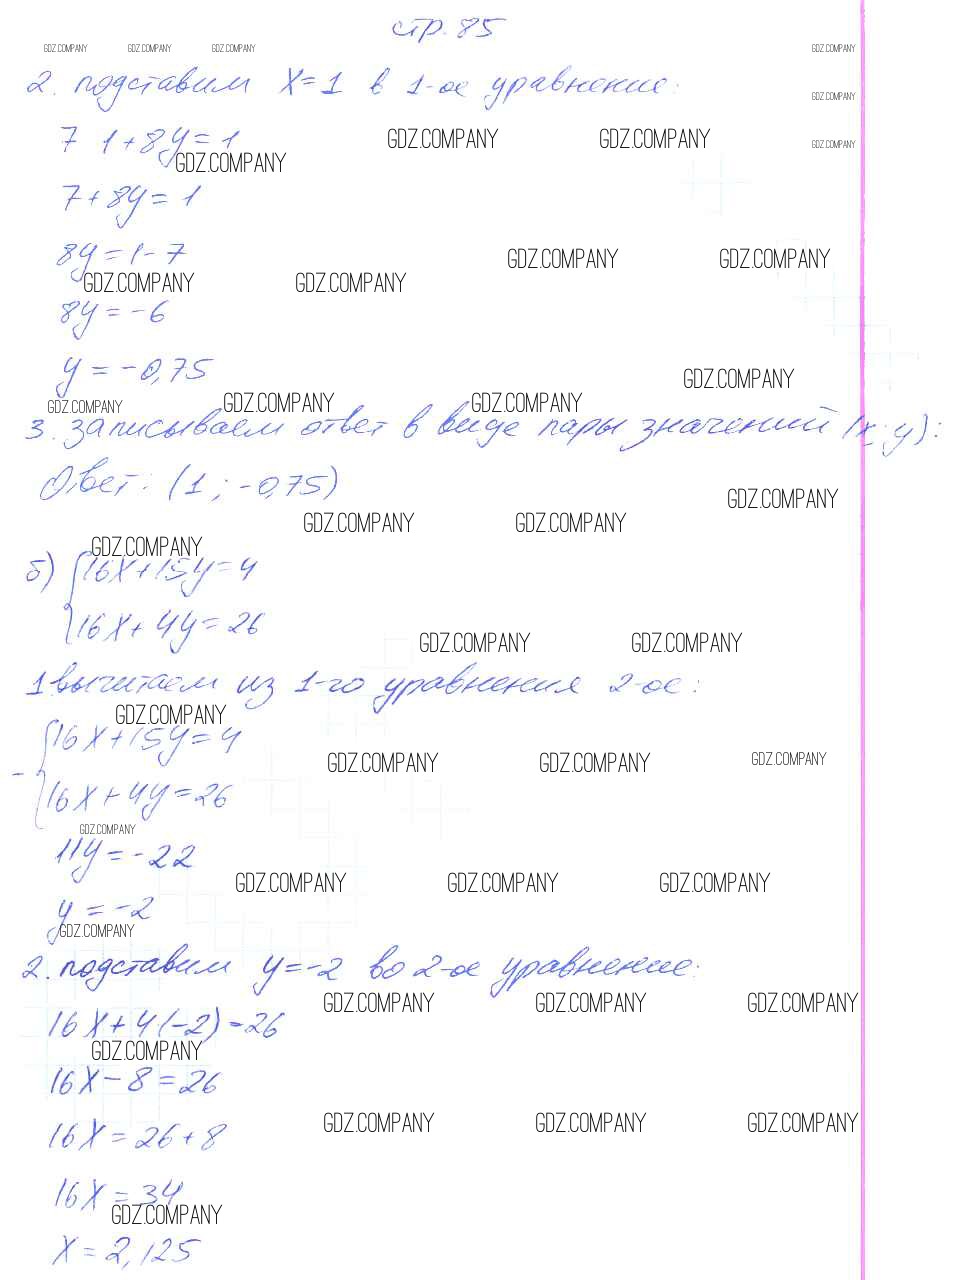 стр. 85
GDZ.COMPANY GDZ.COMPANY GDZ.COMPANY GDZ.COMPANY
2. подставим x=1 в 1-ое уравнение:
GDZ.COMPANY
7 1+8y=1 GDZ.COMPANY GDZ.COMPANY GDZ.COMPANY
GDZ.COMPANY
7+8y=1
8y=1-7 GDZ.COMPANY GDZ.COMPANY
GDZ.COMPANY GDZ.COMPANY
8y=-6
y=-0,75 GDZ.COMPANY
GDZ.COMPANY GDZ.COMPANY GDZ.COMPANY
3. записываем ответ в виде пары значений (x; y):
Ответ: (1; -0,75)
GDZ.COMPANY
GDZ.COMPANY GDZ.COMPANY
GDZ.COMPANY
б) {16x+15y=4
16x+4y=26
GDZ.COMPANY GDZ.COMPANY
1 вычитаем из 1-го уравнения 2-ое:
GDZ.COMPANY
-{16x+15y=4
GDZ.COMPANY GDZ.COMPANY GDZ.COMPANY
16x+4y=26
GDZ.COMPANY
11y=-22
GDZ.COMPANY GDZ.COMPANY GDZ.COMPANY
y=-2
GDZ.COMPANY
2. подставим y=-2 во 2-ое уравнение:
GDZ.COMPANY GDZ.COMPANY GDZ.COMPANY
16x+4·(-2)=26
GDZ.COMPANY
16x-8=26
GDZ.COMPANY GDZ.COMPANY GDZ.COMPANY
16x=26+8
16x=34
GDZ.COMPANY
x=2,125